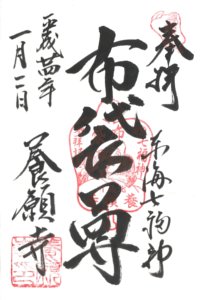 奉拝
東海七福神
布袋尊
平成廿四年
一月二日
養願寺